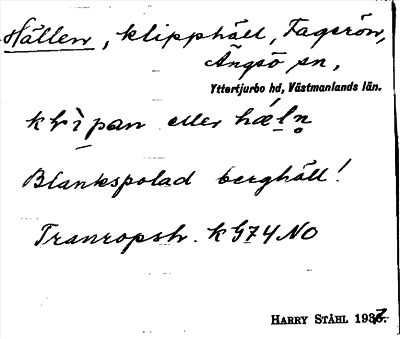 Hällen, klipphäll, Fagerön,
Ängsö sn,
Yttertjurbo hd, Västmanlands län.
eller
Blankspolad berghäll!
Tranropsh. k G74 NO
HARRY STÅHL 1937.